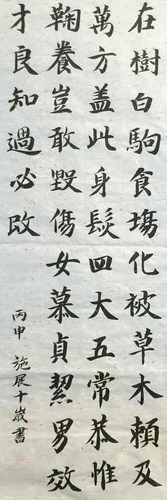 在樹白駒食場化被草木賴及
萬方盖此身髮四大五常恭惟
鞠養豈敢毀傷女慕貞絜男效
才良知過必改
丙申 施展十歲書